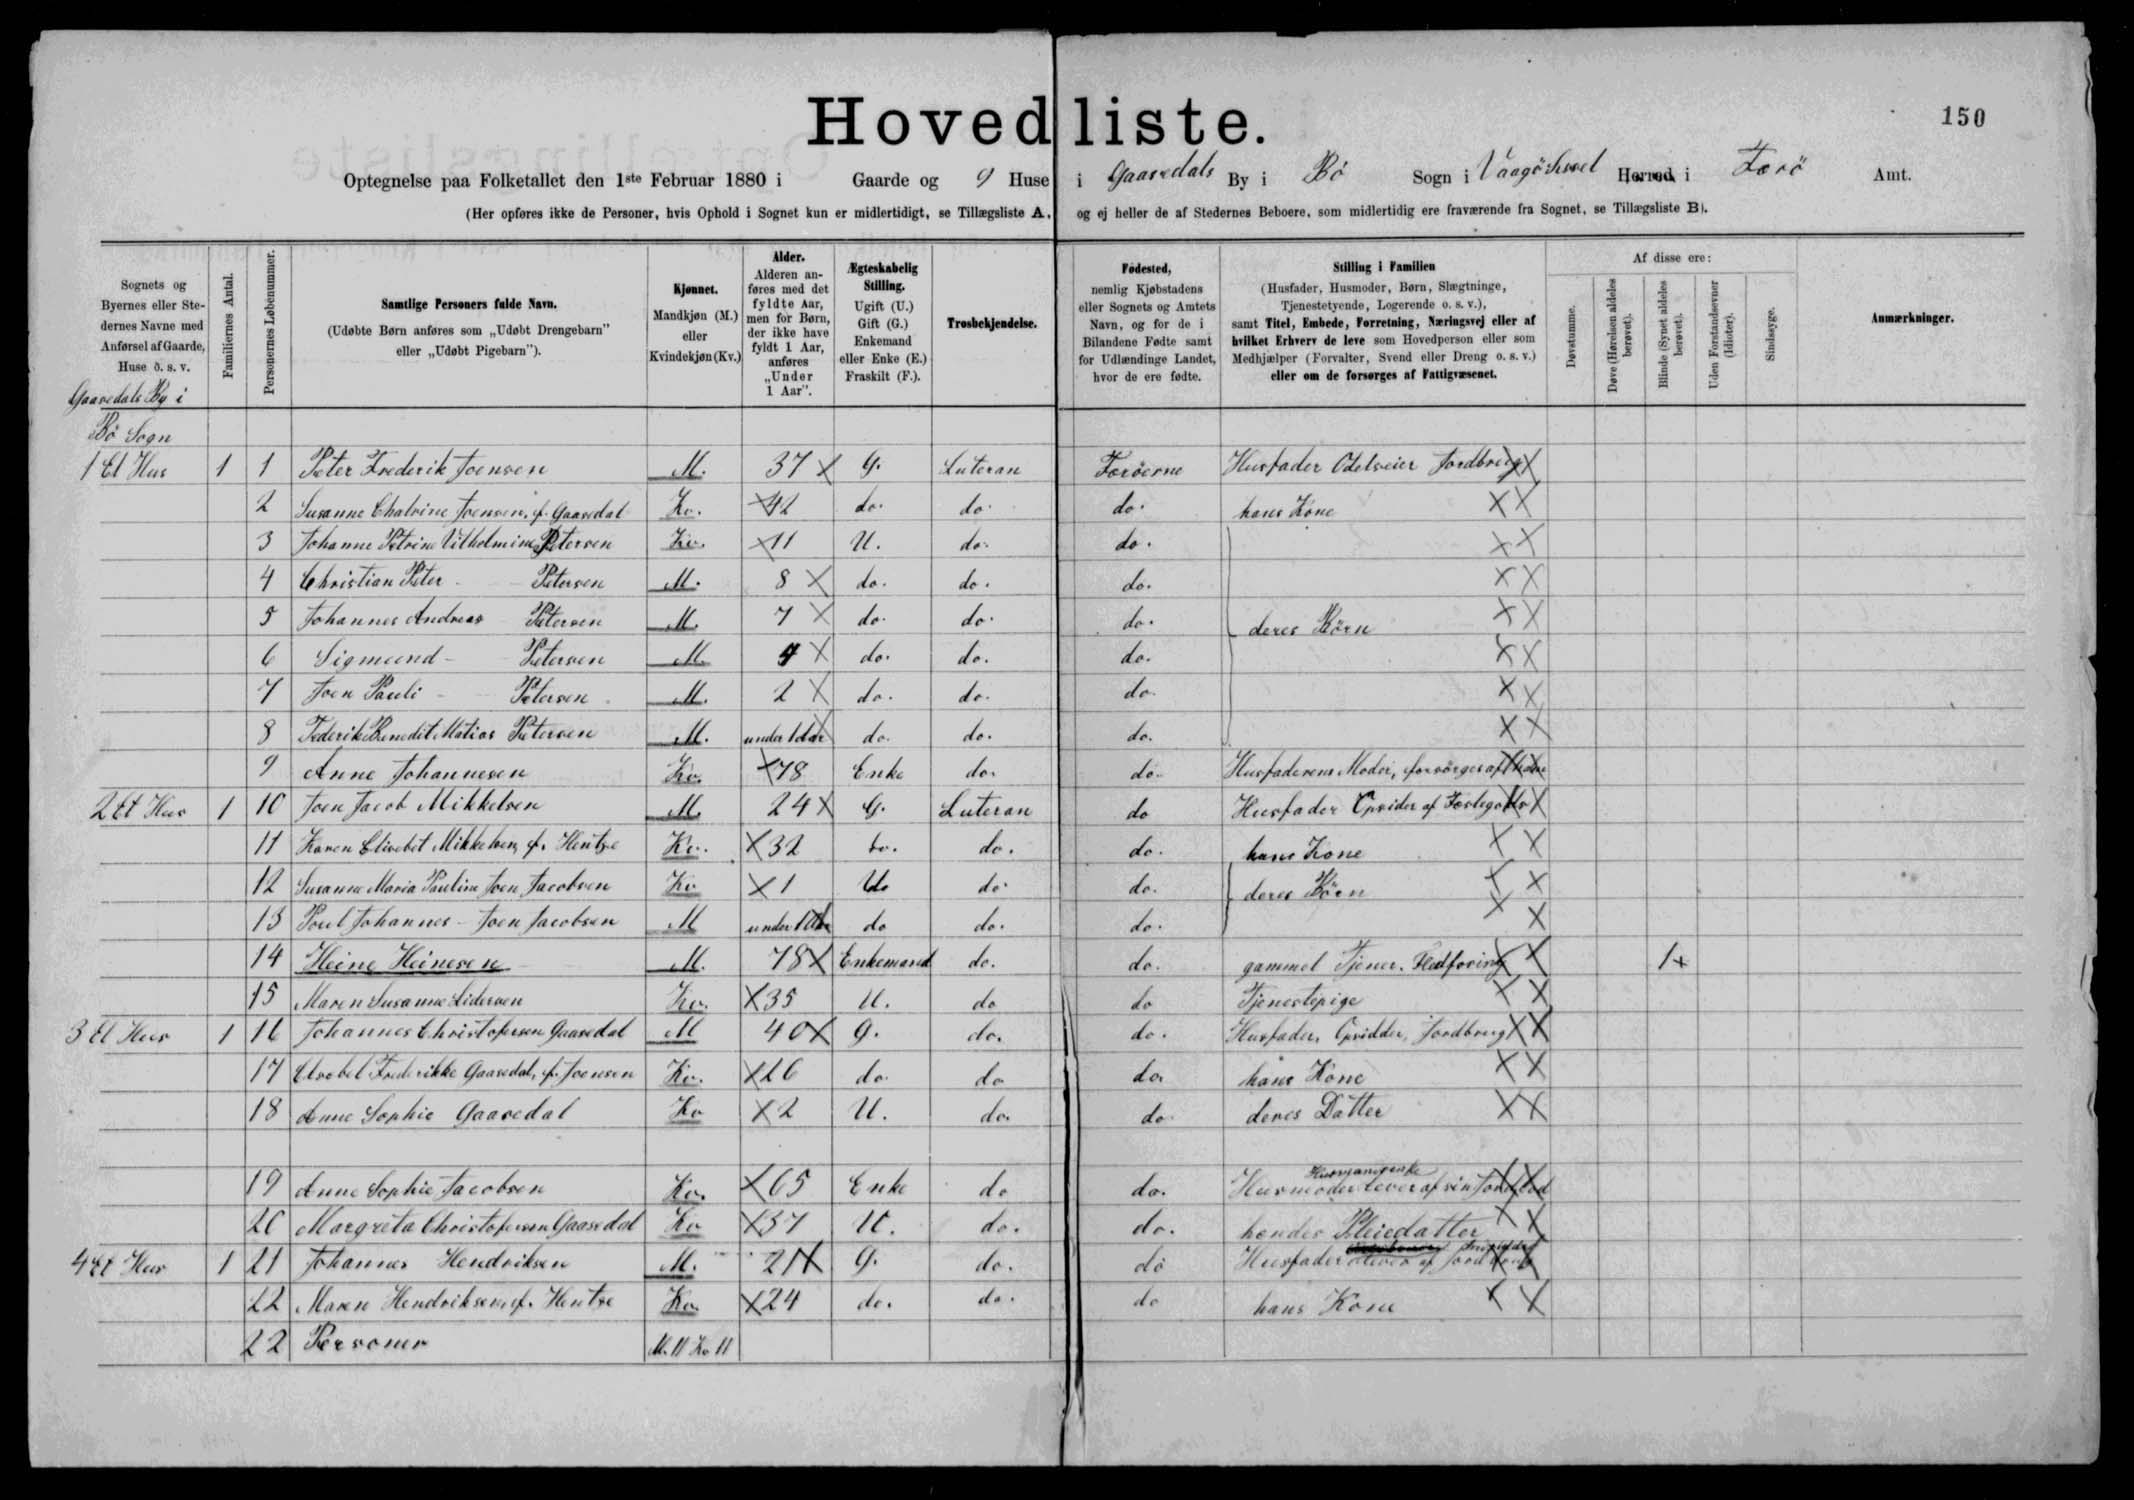 Hovedliste.
150
Optegnelse paa Folketallet den 1ste Februar 1880 i Gaarde og 9 Huse i Gaasedals By i Bö Sogn i Vaagö Syssel Herred i Færö Amt.
(Her opføres ikke de Personer, hvis Ophold i Sognet kun er midlertidigt, se Tillægsliste A, og ej heller de af Stedernes Beboere, som midlertidig ere fraværende fra Sognet, se Tillægsliste B).
Sognets og Byernes eller Stedernes Navne med Anførsel af Gaarde, Huse o. s. v.
Familiernes Antal.
Personernes Løbenummer.
Samtlige Personers fulde Navn.
(Udøbte Børn anføres som „Udøbt Drengebarn" eller „Udøbt Pigebarn").
Kjønnet.
Mandkjøn (M.) eller Kvindekjøn (Kv.)
Alder.
Alderen anføres med det fyldte Aar, men for Børn, der ikke have fyldt 1 Aar, anføres „Under 1 Aar".
Ægteskabelig Stilling.
Ugift (U.) Gift (G.) Enkemand eller Enke (E.) Fraskilt (F.).
Trosbekjendelse.
Fødested,
nemlig Kjøbstadens eller Sognets og Amtets Navn, og for de i Bilandene Fødte samt for Udlændinge Landet, hvor de ere fødte.
Stilling i Familien
(Husfader, Husmoder, Børn, Slægtninge, Tjenestetyende, Logerende o. s. v.),
samt Titel, Embede, Forretning, Næringsvej eller af hvilket Erhverv de leve som Hovedperson eller som Medhjælper (Forvalter, Svend eller Dreng o. s. v.) eller om de forsørges af Fattigvæsenet.
Af disse ere:
Døvstumme.
Døve (Hørelsen aldeles berøvet).
Blinde (Synet aldeles berøvet).
Uden Forstandsevner (Idioter).
Sindssyge.
Anmærkninger.
Gaasedals By i
Bö Sogn
1 Et Hus 1 1 Peter Frederik Joensen M. 37 G. Luteran Færöerne Husfader Odelseier Jordbrug
2 Susanne Chatrine Joensen, f. Gaasedal Kv. 42 do. do. do. hans Kone
3 Johanne Petrine Vilhelmine Petersen Kv. 11 U. do. do.
4 Christian Peter - Petersen M. 8 do. do. do.
5 Johannes Andreas Petersen M. 7 do. do. do. deres Börn
6 Sigmund - Petersen M. 4 do. do. do.
7 Joen Pauli - Petersen M. 2 do. do. do.
8 Federik Benedit Matias Petersen M. under 1 Aar do. do. do.
9 Anne Johannesen Kv. 78 Enke do. do. Husfaderens Moder, forsörges af ham
2 Et Hus 1 10 Joen Jacob Mikkelsen M. 24 G. Luteran do Husfader Opsider af Festegods
11 Karen Elisebet Mikkelsen, f. Hentze Kv. 32 do. do. do. hans Kone
12 Susanne Maria Pauline Joen Jacobsen Kv 1 U. do. do. deres Börn
13 Poul Johannes - Joen Jacobsen M under 1 Aar do do. do.
14 Heine Heinesen M. 78 Enkemand do. do. gammel Tjener. Fledföring 1
15 Maren Susanne Sidersen Kv. 35 U. do do Tjenestepige
3 Et Hus 1 16 Johannes Christofersen Gaasedal M 40 G. do. do. Husfader, Opsidder, Jordbrug
17 Elsebet Frederikke Gaasedal, f. Joensen Kv. 26 do. do do. hans Kone
18 Anne Sophie Gaasedal Kv 2 U. do. do deres Datter
Husmandsenke
19 Anne Sophie Jacobsen Kv. 65 Enke do do. Husmoder lever af sin Jordlod
20 Margreta Christofersen Gaasedal Kv 37 U. do. do. hendes Pleiedatter
4 Et Hus 1 21 Johannes Hendriksen M. 21 G. do. do Husfader lever af Jordbrug
22 Maren Hendriksen, f. Hentze Kv. 24 do. do. do hans Kone
22 Personer M. 11 Kv 11